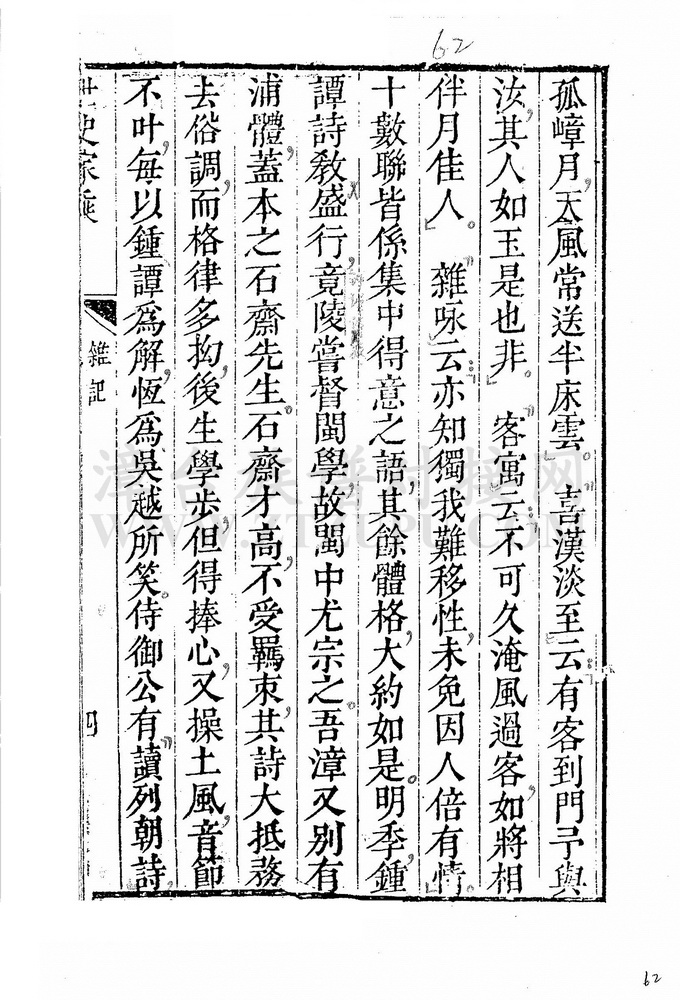 62
孤嶂月天風常送半床雲。喜漢淡至云有客到門予與
汝其人如玉是也非。客寓云不可久淹風過客如將相
伴月佳人。雜咏云亦知獨我難移性未免因人倍有情。
十數聯皆係集中得意之語其餘體格大約如是。明季鍾
譚詩教盛行竟陵嘗督閩學故閩中尤宗之。吾漳又別有
浦體蓋本之石齋先生。石齋才高不受羈束其詩大抵務
去俗調而格律多拗後生學步但得捧心又操土風音節
不叶每以鍾譚為解恆為吳越所笑侍御公有讀列朝詩
世史家乘
雜記
四
WWW.ZTZUPU.COM
62